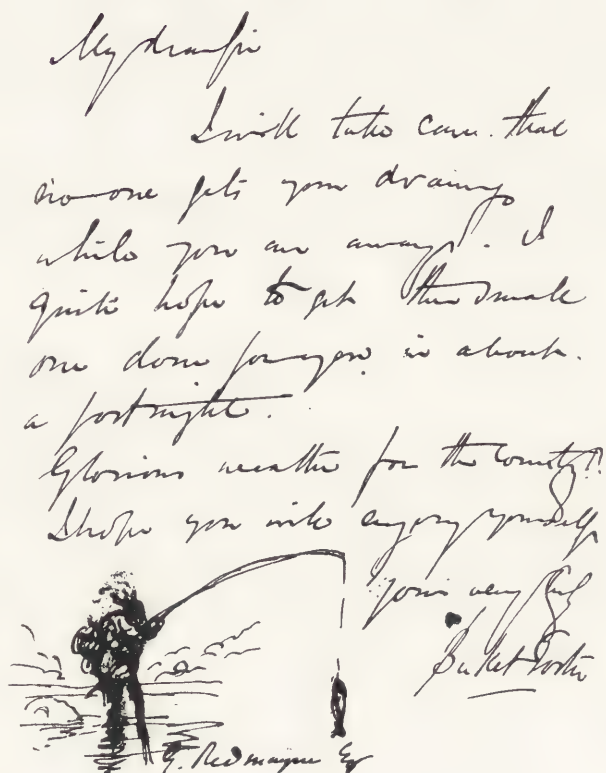 My dear Sir
I will take care that
no one gets your drawing
while you are away. I
quite hope to get the small
one done for you in about
a fortnight.
Glorious weather for the Country!!
I hope you will enjoy yourself
yours very truly
Birket Foster
G. Redmayne Esq